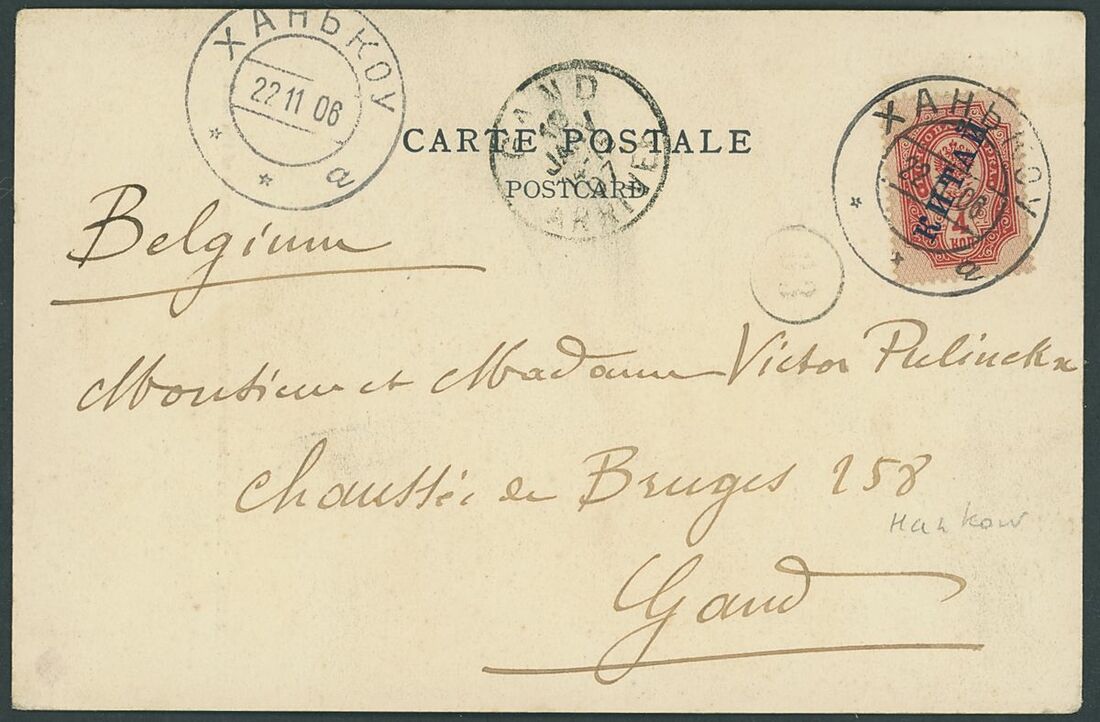 ХАНЬКОУ
22 11 06
а
GAND
JANV
ARRIVEE
CARTE POSTALE
POSTCARD
ХАНЬКОУ
а
КИТАЙ
4
КОП
Belgium
Monsieur et Madame Victor Pulinckx
Chaussée de Bruges 258
Hankow
Gand